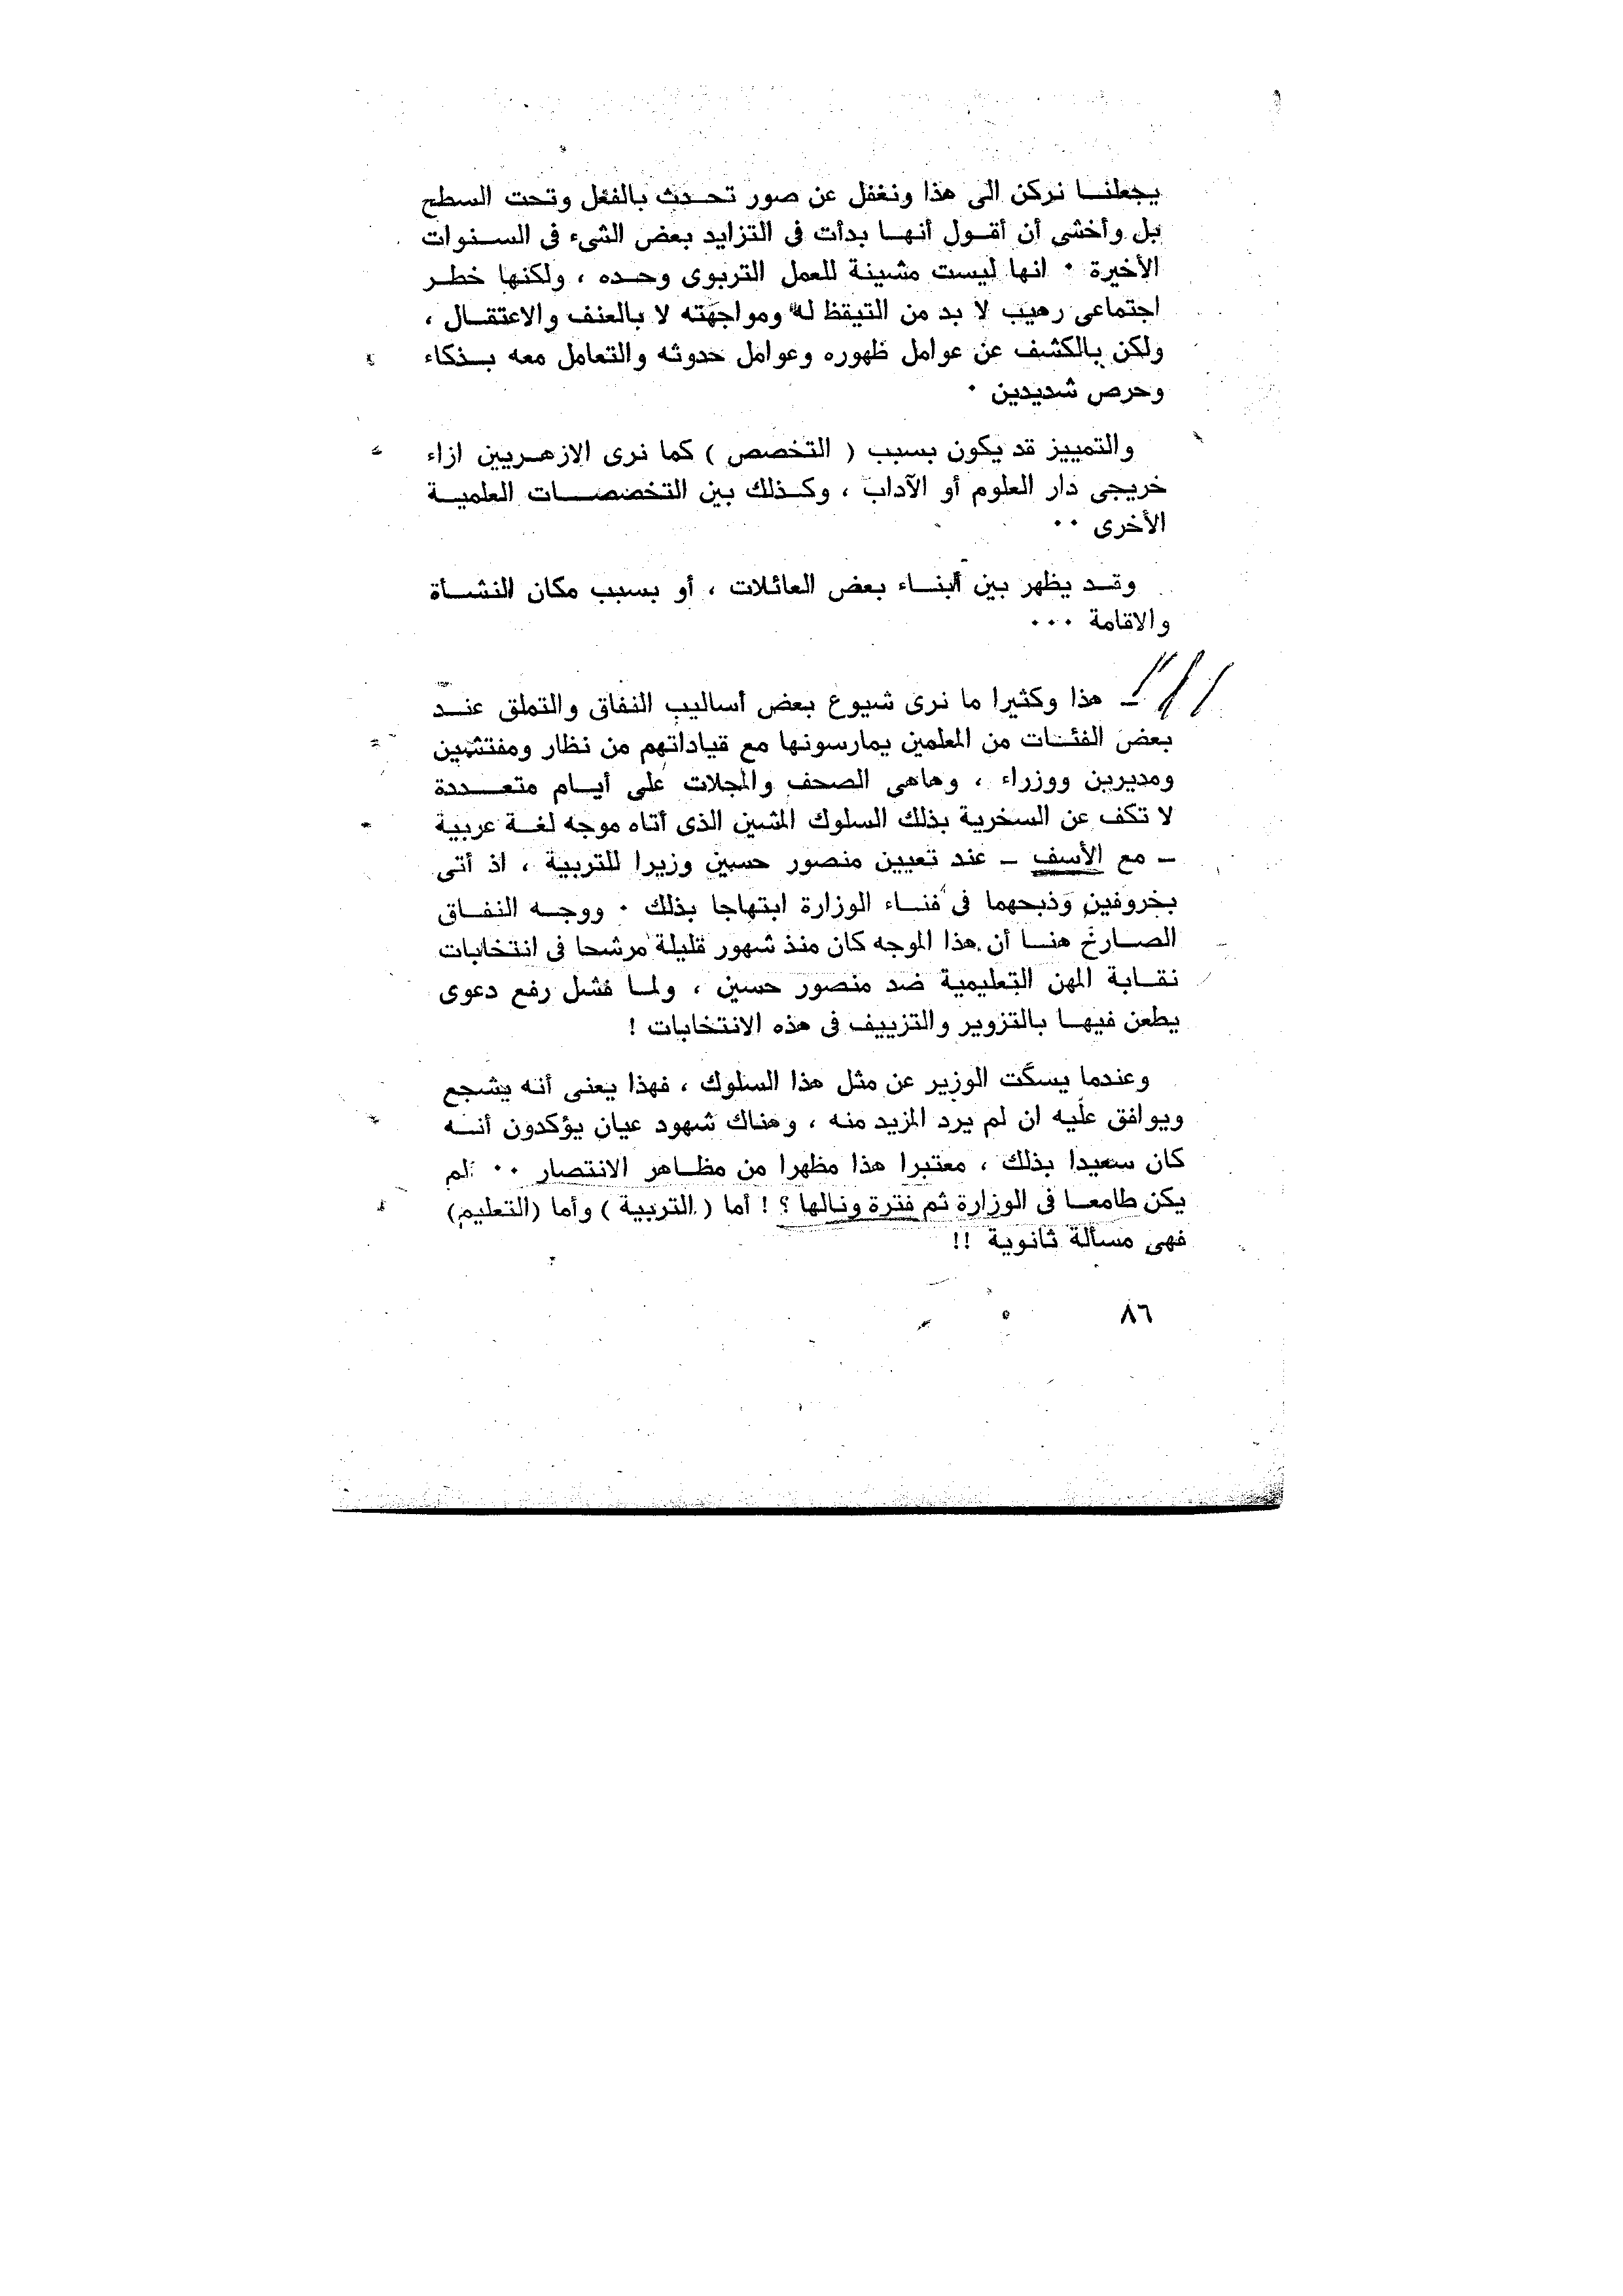 يجعلنا نركن الى هذا ونغفل عن صور تحدث بالفعل وتحت السطح
بل وأخشى أن أقول أنها بدأت فى التزايد بعض الشىء فى السنوات
الأخيرة ٠ انها ليست مشينة للعمل التربوى وحده ، ولكنها خطر
اجتماعى رهيب لا بد من التيقظ له ومواجهته لا بالعنف والاعتقال ،
ولكن بالكشف عن عوامل ظهوره وعوامل حدوثه والتعامل معه بذكاء
وحرص شديدين ٠
والتمييز قد يكون بسبب ( التخصص ) كما نرى الازهريين ازاء
خريجى دار العلوم أو الآداب ، وكذلك بين التخصصات العلمية
الأخرى ٠٠
وقد يظهر بين أبناء بعض العائلات ، أو بسبب مكان النشأة
والاقامة ٠٠٠
ـ هذا وكثيرا ما نرى شيوع بعض أساليب النفاق والتملق عند
بعض الفئات من المعلمين يمارسونها مع قياداتهم من نظار ومفتشين
ومديرين ووزراء ، وهاهى الصحف والمجلات على أيام متعددة
لا تكف عن السخرية بذلك السلوك المشين الذى أتاه موجه لغة عربية
ـ مع الأسف ـ عند تعيين منصور حسين وزيرا للتربية ، اذ أتى
بخروفين وذبحهما فى فناء الوزارة ابتهاجا بذلك ٠ ووجه النفاق
الصارخ هنا أن هذا الموجه كان منذ شهور قليلة مرشحا فى انتخابات
نقابة المهن التعليمية ضد منصور حسين ، ولما فشل رفع دعوى
يطعن فيها بالتزوير والتزييف فى هذه الانتخابات !
وعندما يسكت الوزير عن مثل هذا السلوك ، فهذا يعنى أنه يشجع
ويوافق عليه ان لم يرد المزيد منه ، وهناك شهود عيان يؤكدون أنه
كان سعيدا بذلك ، معتبرا هذا مظهرا من مظاهر الانتصار ٠٠ ألم
يكن طامعا فى الوزارة ثم فترة ونالها ؟ ! أما ( التربية ) وأما (التعليم)
فهى مسألة ثانوية !!
٨٦